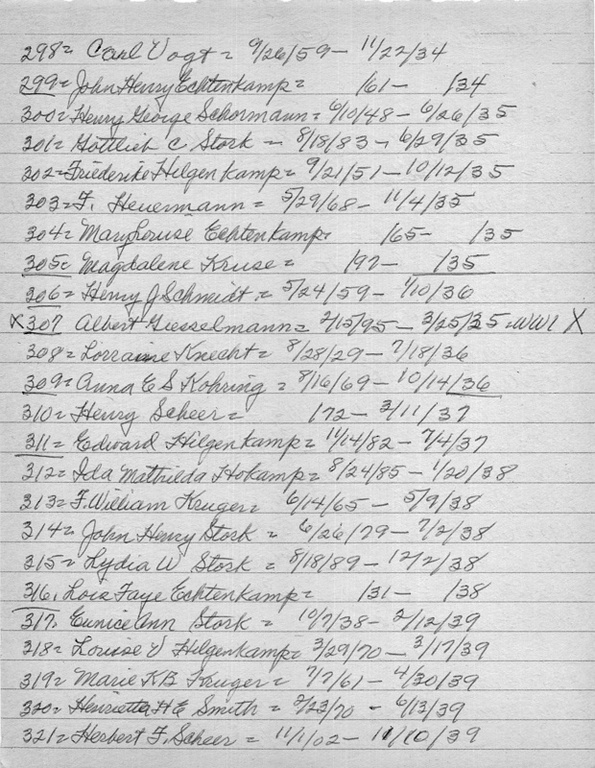 298= Carl Vogt = 9/26/59 - 11/22/34
299= John Henry Echtenkamp = /61 - /34
300= Henry George Schormann = 6/10/48 - 6/26/35
301= Gottlieb C Stork - 8/18/83 - 6/29/35
302= Friederike Hilgenkamp = 9/21/51 - 10/12/35
303= F. Heuermann = 5/29/68 - 11/4/35
304= Mary Louise Echtenkamp = /65 - /35
305= Magdalene Kruse = /97 - /35
306= Henry J Schmidt = 5/24/59 - 1/10/36
X 307 Albert Giesselmann = 2/15/95 - 3/25/35 = WW1 X
308= Lorraine Knecht = 8/28/29 - 7/18/36
309= Anna E S Kohring = 8/16/69 - 10/14/36
310= Henry Scheer = /72 - 3/11/37
311= Edward Hilgenkamp = 11/14/82 - 7/4/37
312= Ida Mathilda Hokamp = 8/24/85 - 1/20/38
313= F. William Kruger = 6/14/65 - 5/9/38
314= John Henry Stork = 6/26/79 - 7/2/38
315= Lydia W Stork = 8/18/89 - 12/2/38
316. Lois Faye Echtenkamp = /31 - /38
317. Eunice Ann Stork = 10/7/38 - 2/12/39
318= Louise V Hilgenkamp = 3/29/70 - 3/17/39
319= Marie K B Kruger = 7/7/61 - 4/30/39
320= Henrietta H E Smith = 2/23/70 - 6/13/39
321= Herbert F. Scheer = 11/1/02 - 11/10/39